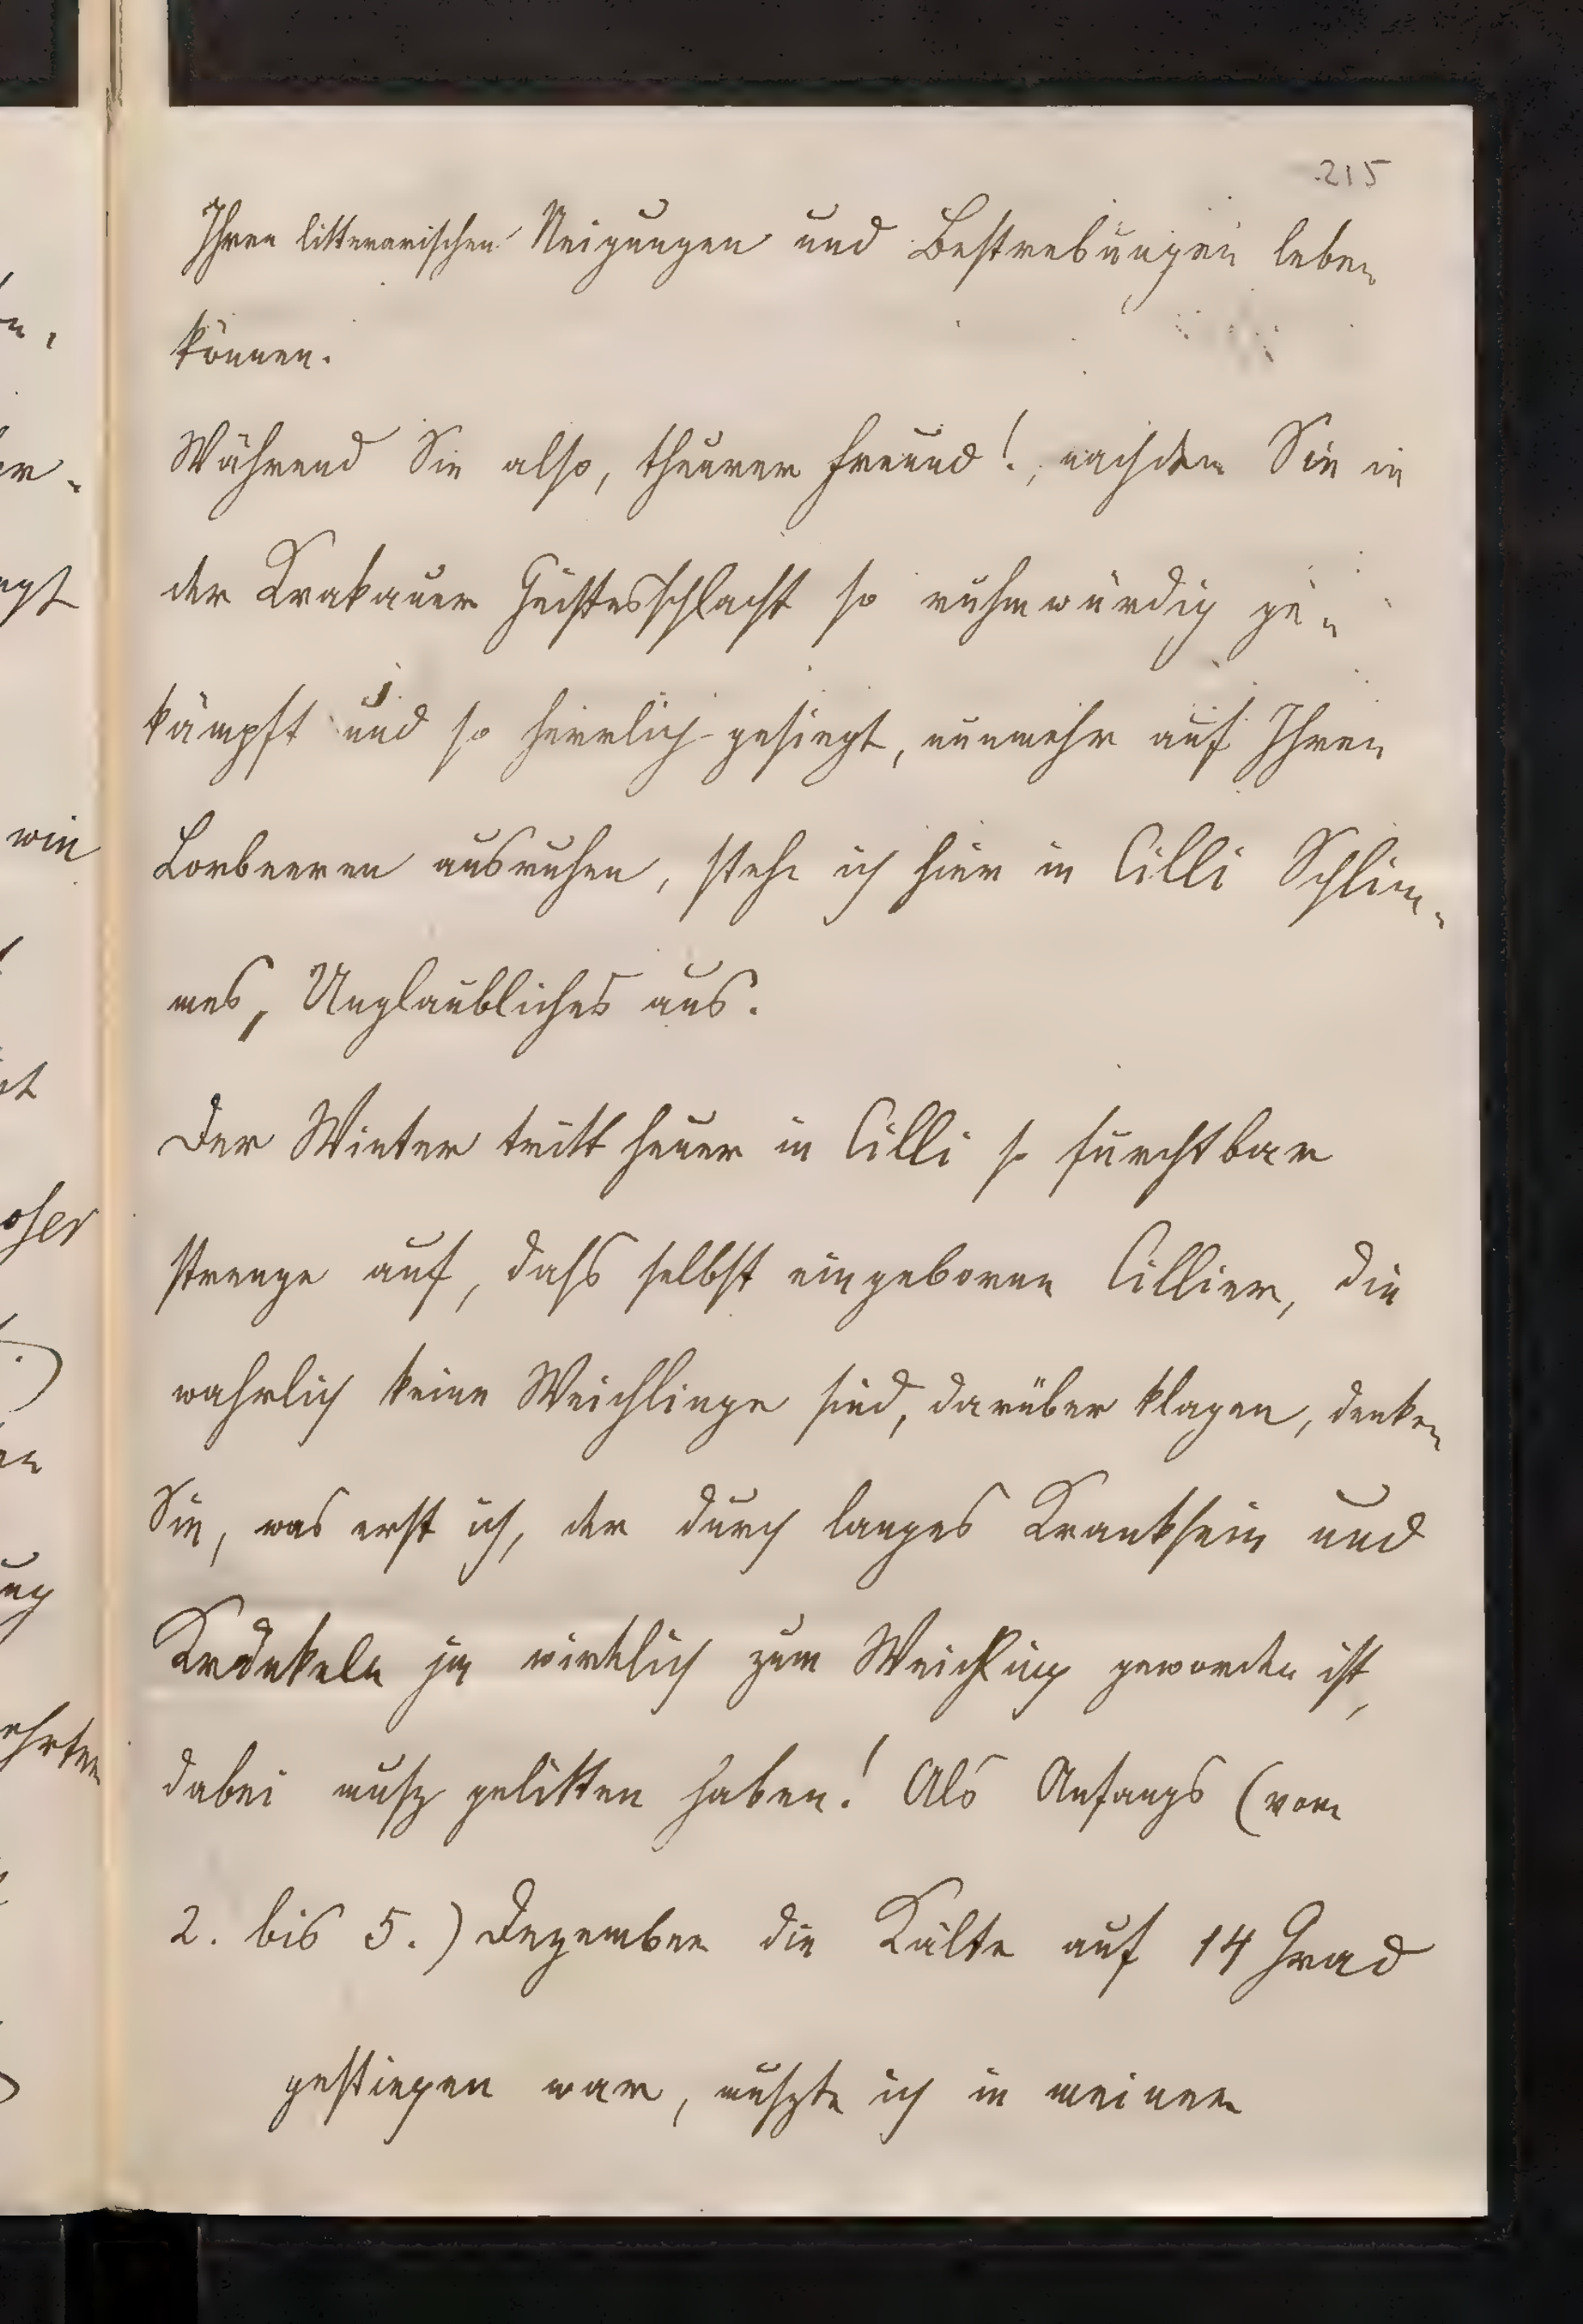 215
Ihren litterarischen Neigungen und Bestrebungen leben
können.
Während Sie also, theurer Freund!, nachdem Sie in
der Krakauer Geistesschlacht so ruhmwürdig ge-
kämpft und so herrlich gesiegt, nunmehr auf Ihren
Lorbeeren ausruhen, stehe ich hier in Cilli Schlim-
mes, Unglaubliches aus.
Der Winter tritt heuer in Cilli so furchtbar
strenge auf, dass selbst eingeborene Cillier, die
wahrlich keine Weichlinge sind, darüber klagen, denken
Sie, was erst ich, der durch langes Kranksein und
Kränkeln ja wirklich zum Weichling geworden ist,
dabei musz gelitten haben! Als Anfangs (vom
2. bis 5.) Dezember die Kälte auf 14 Grad
gestiegen war, muszte ich in meiner